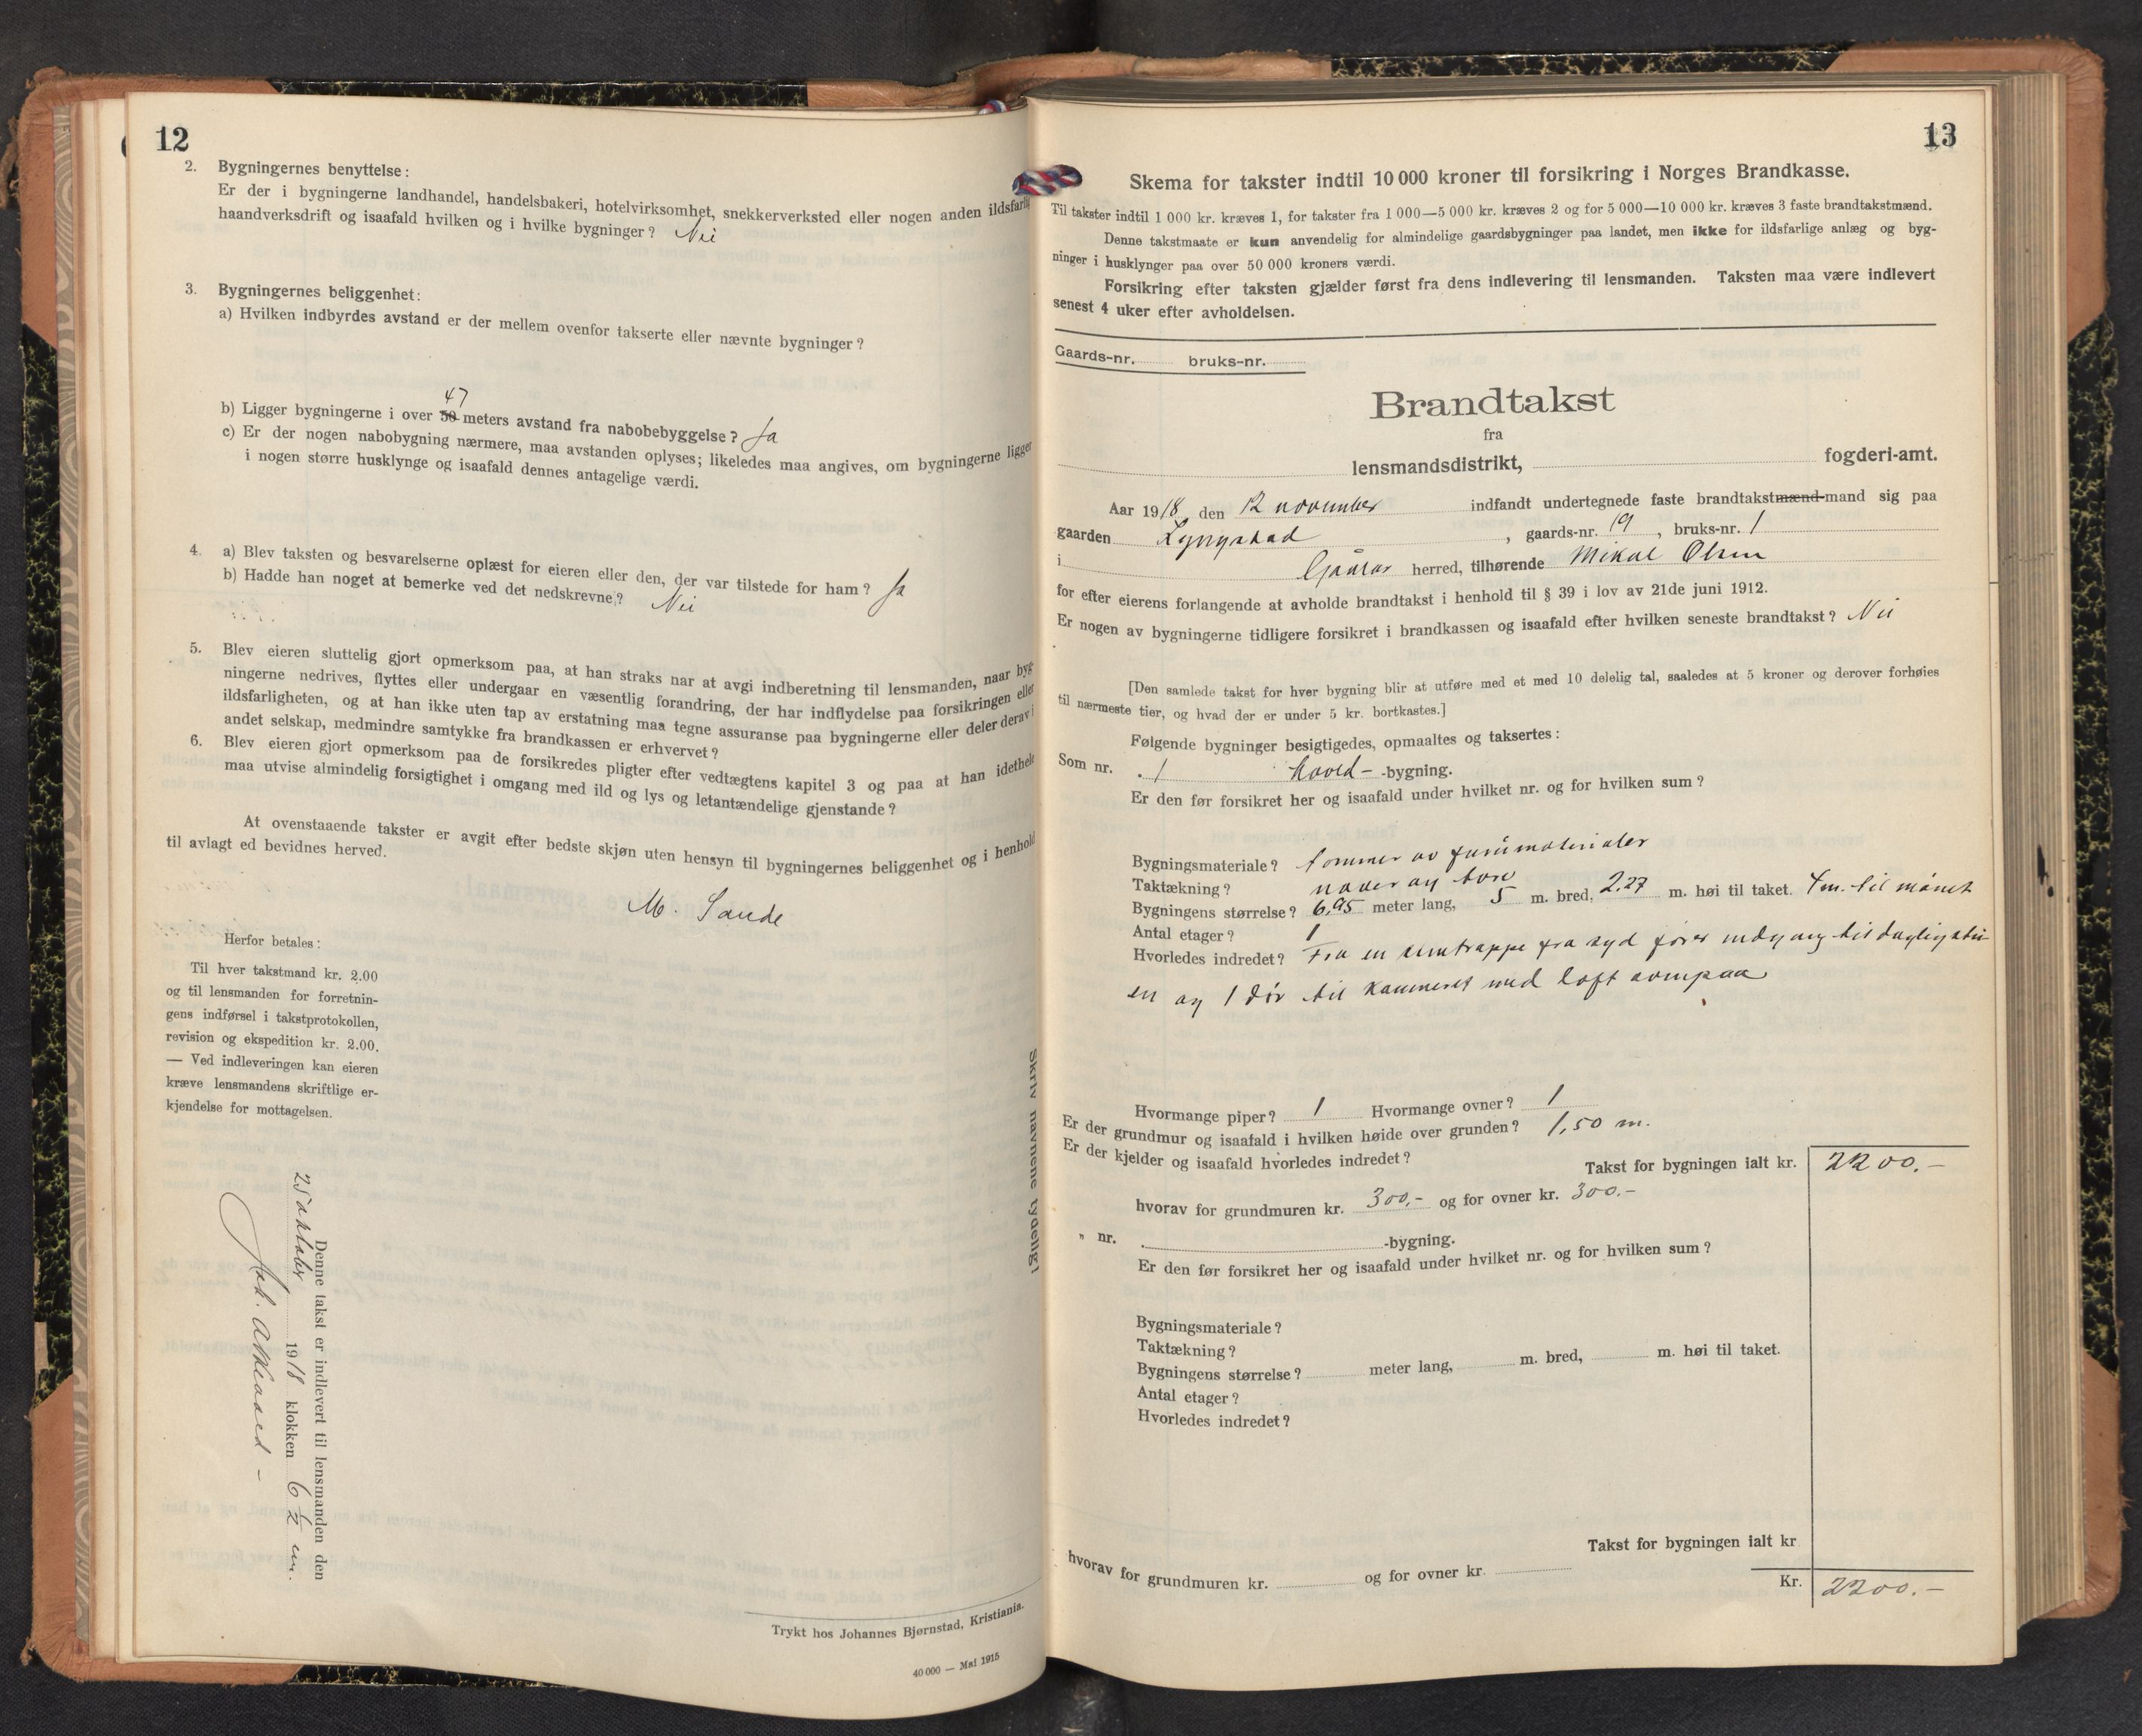 12
2. Bygningernes benyttelse:
Er der i bygningerne landhandel, handelsbakeri, hotelvirksomhet, snekkerverksted eller nogen anden ildsfarlig
haandverksdrift og isaafald hvilken og i hvilke bygninger? Nei
3. Bygningernes beliggenhet:
a) Hvilken indbyrdes avstand er der mellem ovenfor takserte eller nævnte bygninger?
47
b) Ligger bygningerne i over 50 meters avstand fra nabobebyggelse? Ja
c) Er der nogen nabobygning nærmere, maa avstanden oplyses; likeledes maa angives, om bygningerne ligger
i nogen større husklynge og isaafald dennes antagelige værdi.
4. a) Blev taksten og besvarelserne oplæst for eieren eller den, der var tilstede for ham? Ja
b) Hadde han noget at bemerke ved det nedskrevne? Nei
5. Blev eieren sluttelig gjort opmerksom paa, at han straks har at avgi indberetning til lensmanden, naar byg-
ningerne nedrives, flyttes eller undergaar en væsentlig forandring, der har indflydelse paa forsikringen eller
ildsfarligheten, og at han ikke uten tap av erstatning maa tegne assuranse paa bygningerne eller deler derav i
andet selskap, medmindre samtykke fra brandkassen er erhvervet?
6. Blev eieren gjort opmerksom paa de forsikredes pligter efter vedtægtens kapitel 3 og paa at han idethele
maa utvise almindelig forsigtighet i omgang med ild og lys og letantændelige gjenstande?
At ovenstaaende takster er avgit efter bedste skjøn uten hensyn til bygningernes beliggenhet og i henhold
til avlagt ed bevidnes herved.
M. Sande
Herfor betales:
Til hver takstmand kr. 2.00
og til lensmanden for forretnin-
gens indførsel i takstprotokollen,
revision og ekspedition kr. 2.00.
— Ved indleveringen kan eieren
kræve lensmandens skriftlige er-
kjendelse for mottagelsen.
Denne takst er indlevert til lensmanden den
25 oktober 1918 klokken 6 ½ em.
Skriv navnene tydelig!
Trykt hos Johannes Bjørnstad, Kristiania.
40 000 — Mai 1915
13
Skema for takster indtil 10 000 kroner til forsikring i Norges Brandkasse.
Til takster indtil 1 000 kr. kræves 1, for takster fra 1 000—5 000 kr. kræves 2 og for 5 000—10 000 kr. kræves 3 faste brandtakstmænd.
Denne takstmaate er kun anvendelig for almindelige gaardsbygninger paa landet, men ikke for ildsfarlige anlæg og byg-
ninger i husklynger paa over 50 000 kroners værdi.
Forsikring efter taksten gjælder først fra dens indlevering til lensmanden. Taksten maa være indlevert
senest 4 uker efter avholdelsen.
Gaards-nr. bruks-nr.
Brandtakst
fra
lensmandsdistrikt, fogderi-amt.
Aar 1918, den 12 november indfandt undertegnede faste brandtakstmænd-mand sig paa
gaarden Lyngstad, gaards-nr. 19, bruks-nr. 1
i Gaular herred, tilhørende Mikal Olsen
for efter eierens forlangende at avholde brandtakst i henhold til § 39 i lov av 21de juni 1912.
Er nogen av bygningerne tidligere forsikret i brandkassen og isaafald efter hvilken seneste brandtakst? Nei
[Den samlede takst for hver bygning blir at utføre med et med 10 delelig tal, saaledes at 5 kroner og derover forhøies
til nærmeste tier, og hvad der er under 5 kr. bortkastes.]
Følgende bygninger besigtigedes, opmaaltes og taksertes:
Som nr. 1 hoved- -bygning.
Er den før forsikret her og isaafald under hvilket nr. og for hvilken sum?
Bygningsmateriale? tømmer av furumaterialer
Taktækning? never og torv
Bygningens størrelse? 6,95 meter lang, 5 m. bred, 2.27 m. høi til taket. 4 m. til mønet
Antal etager? 1
Hvorledes indredet? Fra en stentrappe fra syd fører indgang til dagligstu-
en og 1 dør til kammerset med loft ovenpaa
Hvormange piper? 1 Hvormange ovner? 1
Er der grundmur og isaafald i hvilken høide over grunden? 1,50 m.
Er der kjelder og isaafald hvorledes indredet?
Takst for bygningen ialt kr. 2200.-
hvorav for grundmuren kr. 300.- og for ovner kr. 300.-
" nr. -bygning.
Er den før forsikret her og isaafald under hvilket nr. og for hvilken sum?
Bygningsmateriale?
Taktækning?
Bygningens størrelse? meter lang, m. bred, m. høi til taket.
Antal etager?
Hvorledes indredet?
Takst for bygningen ialt kr
hvorav for grundmuren kr. og for ovner kr.
Kr. 2200.-